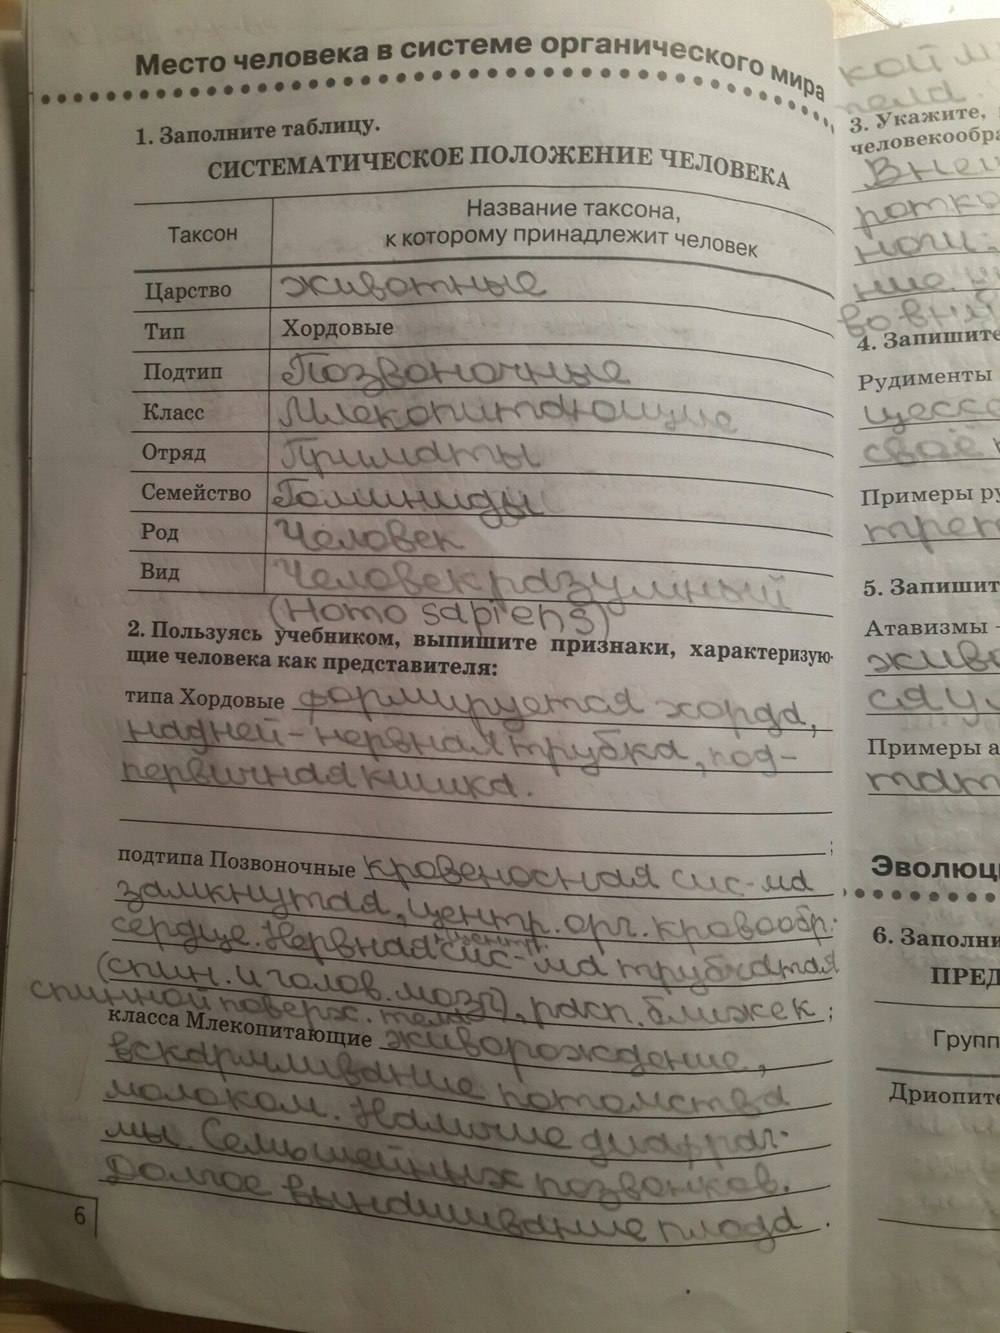 Место человека в системе органического мира
1. Заполните таблицу.
СИСТЕМАТИЧЕСКОЕ ПОЛОЖЕНИЕ ЧЕЛОВЕКА
Таксон
Название таксона,
к которому принадлежит человек
Царство животные
Тип Хордовые
Подтип Позвоночные
Класс Млекопитающие
Отряд Приматы
Семейство Гоминиды
Род Человек
Вид Человек разумный
(Homo sapiens)
2. Пользуясь учебником, выпишите признаки, характеризую-
щие человека как представителя:
типа Хордовые формируется хорда,
над ней - нервная трубка, под -
первичная кишка.
;
подтипа Позвоночные кровеносная сис-ма
замкнутая, центр. орг. кровообр.
сердце. Нервная центр. сис-ма трубчатая
(спин. и голов. мозг), расп. ближе к ;
спинной поверх. тела
класса Млекопитающие живорождение,
вскармливание потомства
молоком. Наличие диафраг-
мы. Семь шейных позвонков.
Долгое вынашивание плода .
6
кой
тела.
3. Укажите,
человекообра
Внеш
ротко
ноги.
ние.
во вн
4. Запишите
Рудименты
цесс
своё
Примеры ру
трет
5. Запишит
Атавизмы -
живо
Примеры а
Эволюц
6. Заполни
ПРЕД
Групп
Дриопите